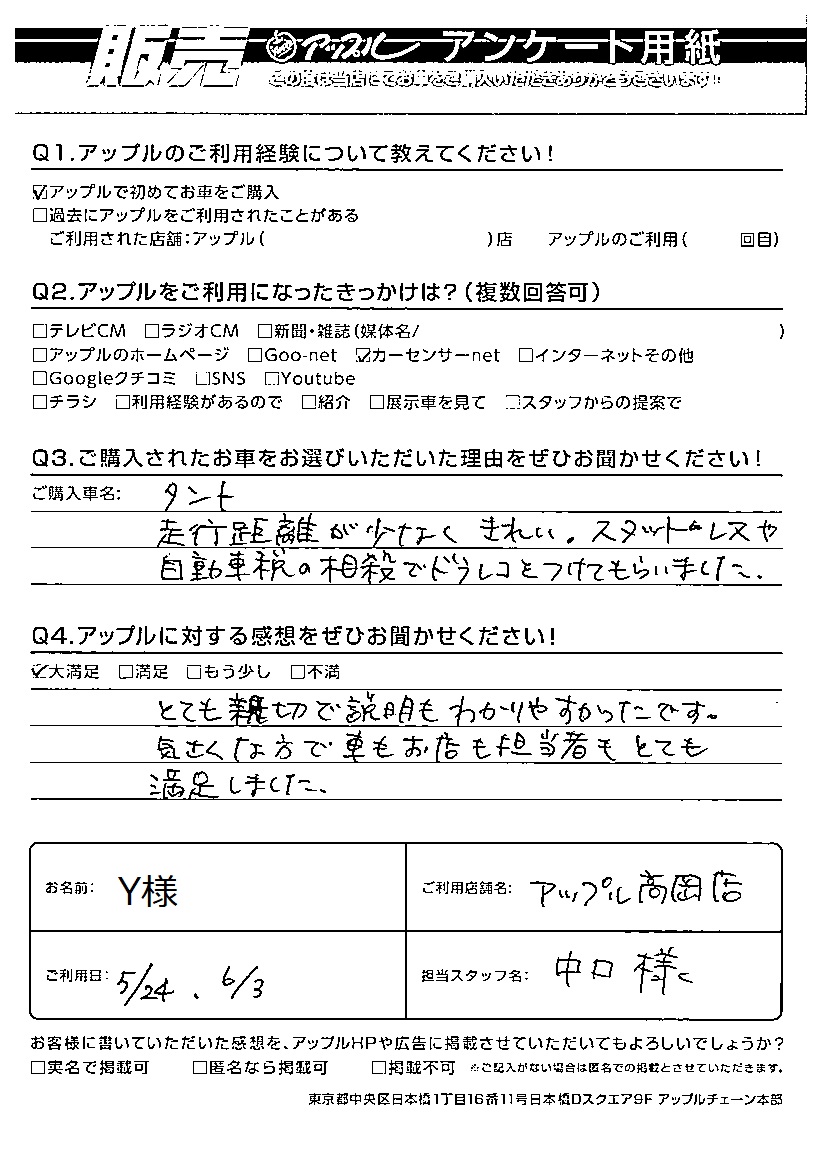 販売 アップル アンケート用紙
この度は当店にてお車をご購入いただきありがとうございます!!
Q1.アップルのご利用経験について教えてください!
☑アップルで初めてお車をご購入
□過去にアップルをご利用されたことがある
ご利用された店舗:アップル( )店 アップルのご利用( 回目)
Q2.アップルをご利用になったきっかけは?(複数回答可)
□テレビCM □ラジオCM □新聞・雑誌(媒体名/ )
□アップルのホームページ □Goo-net ☑カーセンサーnet □インターネットその他
□Googleクチコミ □SNS □Youtube
□チラシ □利用経験があるので □紹介 □展示車を見て □スタッフからの提案で
Q3.ご購入されたお車をお選びいただいた理由をぜひお聞かせください!
ご購入車名: タント
走行距離が少なく きれい。スタッドレスや
自動車税の相殺でドラレコとつけてもらいました。
Q4.アップルに対する感想をぜひお聞かせください!
☑大満足 □満足 □もう少し □不満
とても親切で説明もわかりやすかったです。
気さくな方で車もお店も担当者もとても
満足しました。
お名前: Y様 ご利用店舗名: アップル高岡店
ご利用日: 5/24 、 6/3 担当スタッフ名: 中口 様
お客様に書いていただいた感想を、アップルHPや広告に掲載させていただいてもよろしいでしょうか?
□実名で掲載可 □匿名なら掲載可 □掲載不可 ※ご記入がない場合は匿名での掲載とさせていただきます。
東京都中央区日本橋1丁目16番11号日本橋Dスクエア9F アップルチェーン本部